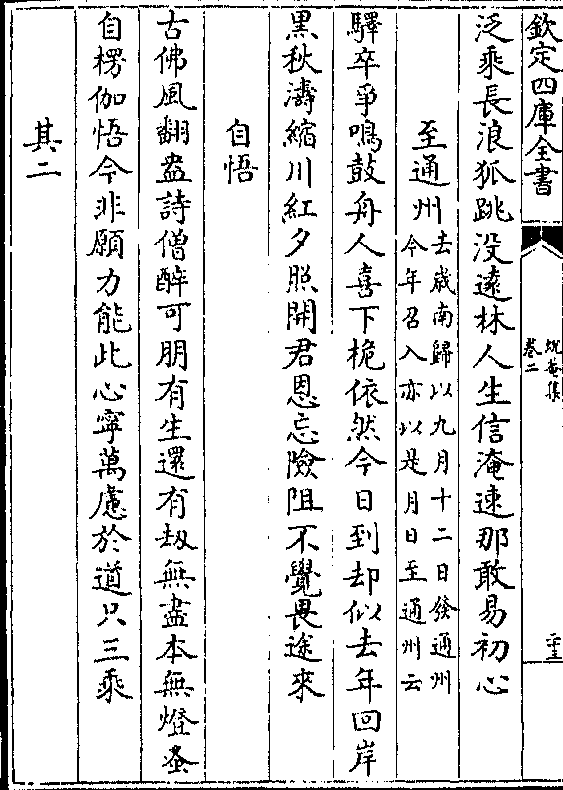 欽定四庫全書
蛻菴集
卷二
泛乘長浪狐跳没遠林人生信淹速那敢易初心
至通州
去歲南歸以九月十二日發通州
今年召入亦以是月日至通州云
驛卒爭鳴鼓舟人喜下桅依然今日到却似去年回岸
黑秋濤縮川紅夕照開君恩忘險阻不覺畏途來
自悟
古佛風翻盋詩僧醉可朋有生還有刼無盡本無燈蚤
自楞伽悟今非願力能此心寧萬慮於道只三乘
其二